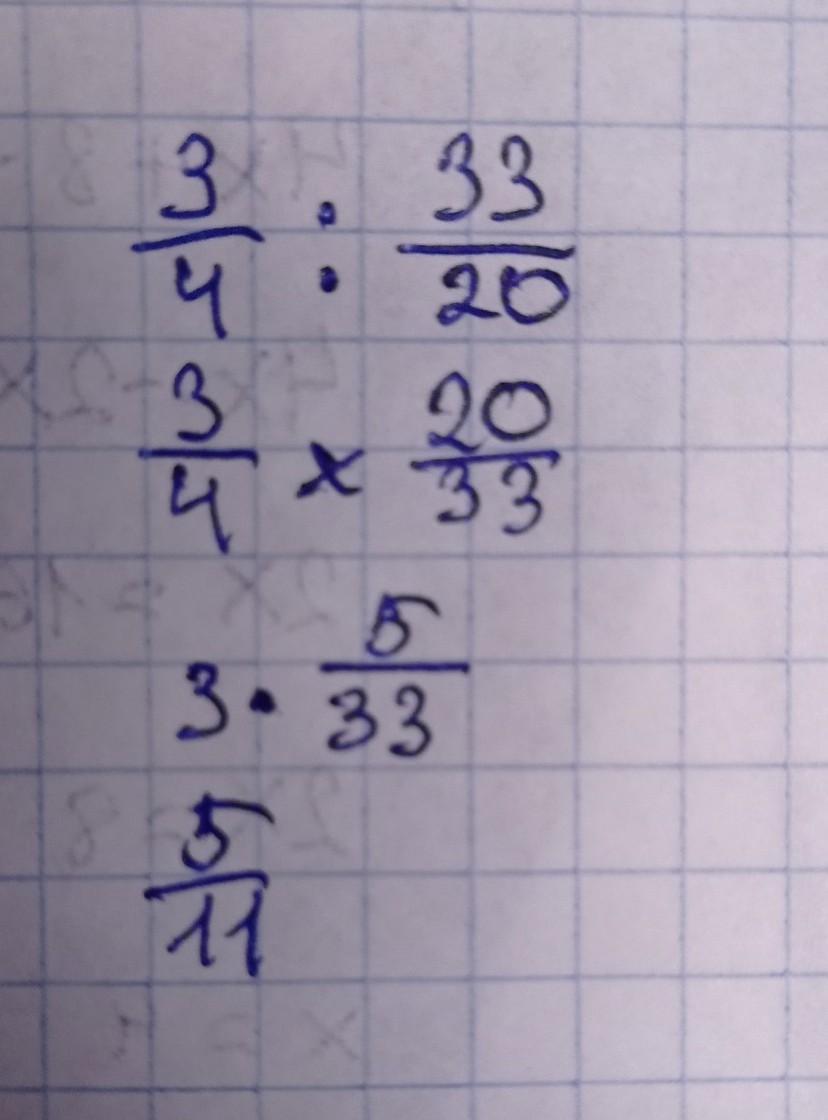 3/4 : 33/20
3/4 x 20/33
3 · 5/33
5/11